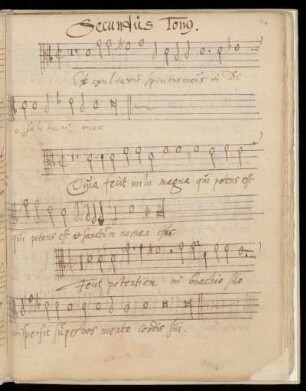 Secundus Tonq.
Et exultavit spiritus meus in De
o salutari meo
Quia fecit mihi magna qui potens est
qui potens est et sanctum nomen eius.
Fecit potentiam in brachio suo
dispersit superbos mente cordis sui.